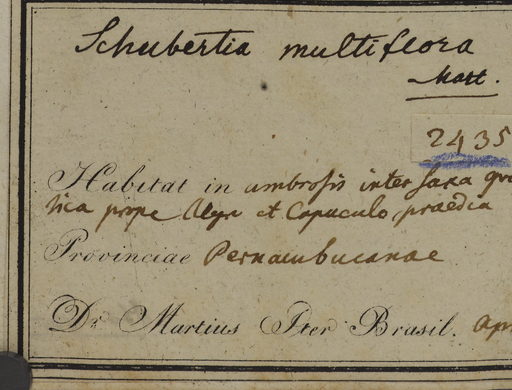 Schubertia multiflora
Mart.
2435
Habitat in umbrosis inter saxa
prope et Capuculo praedia
Provinciae Pernambucanae
Dr. Martius Iter Brasil.